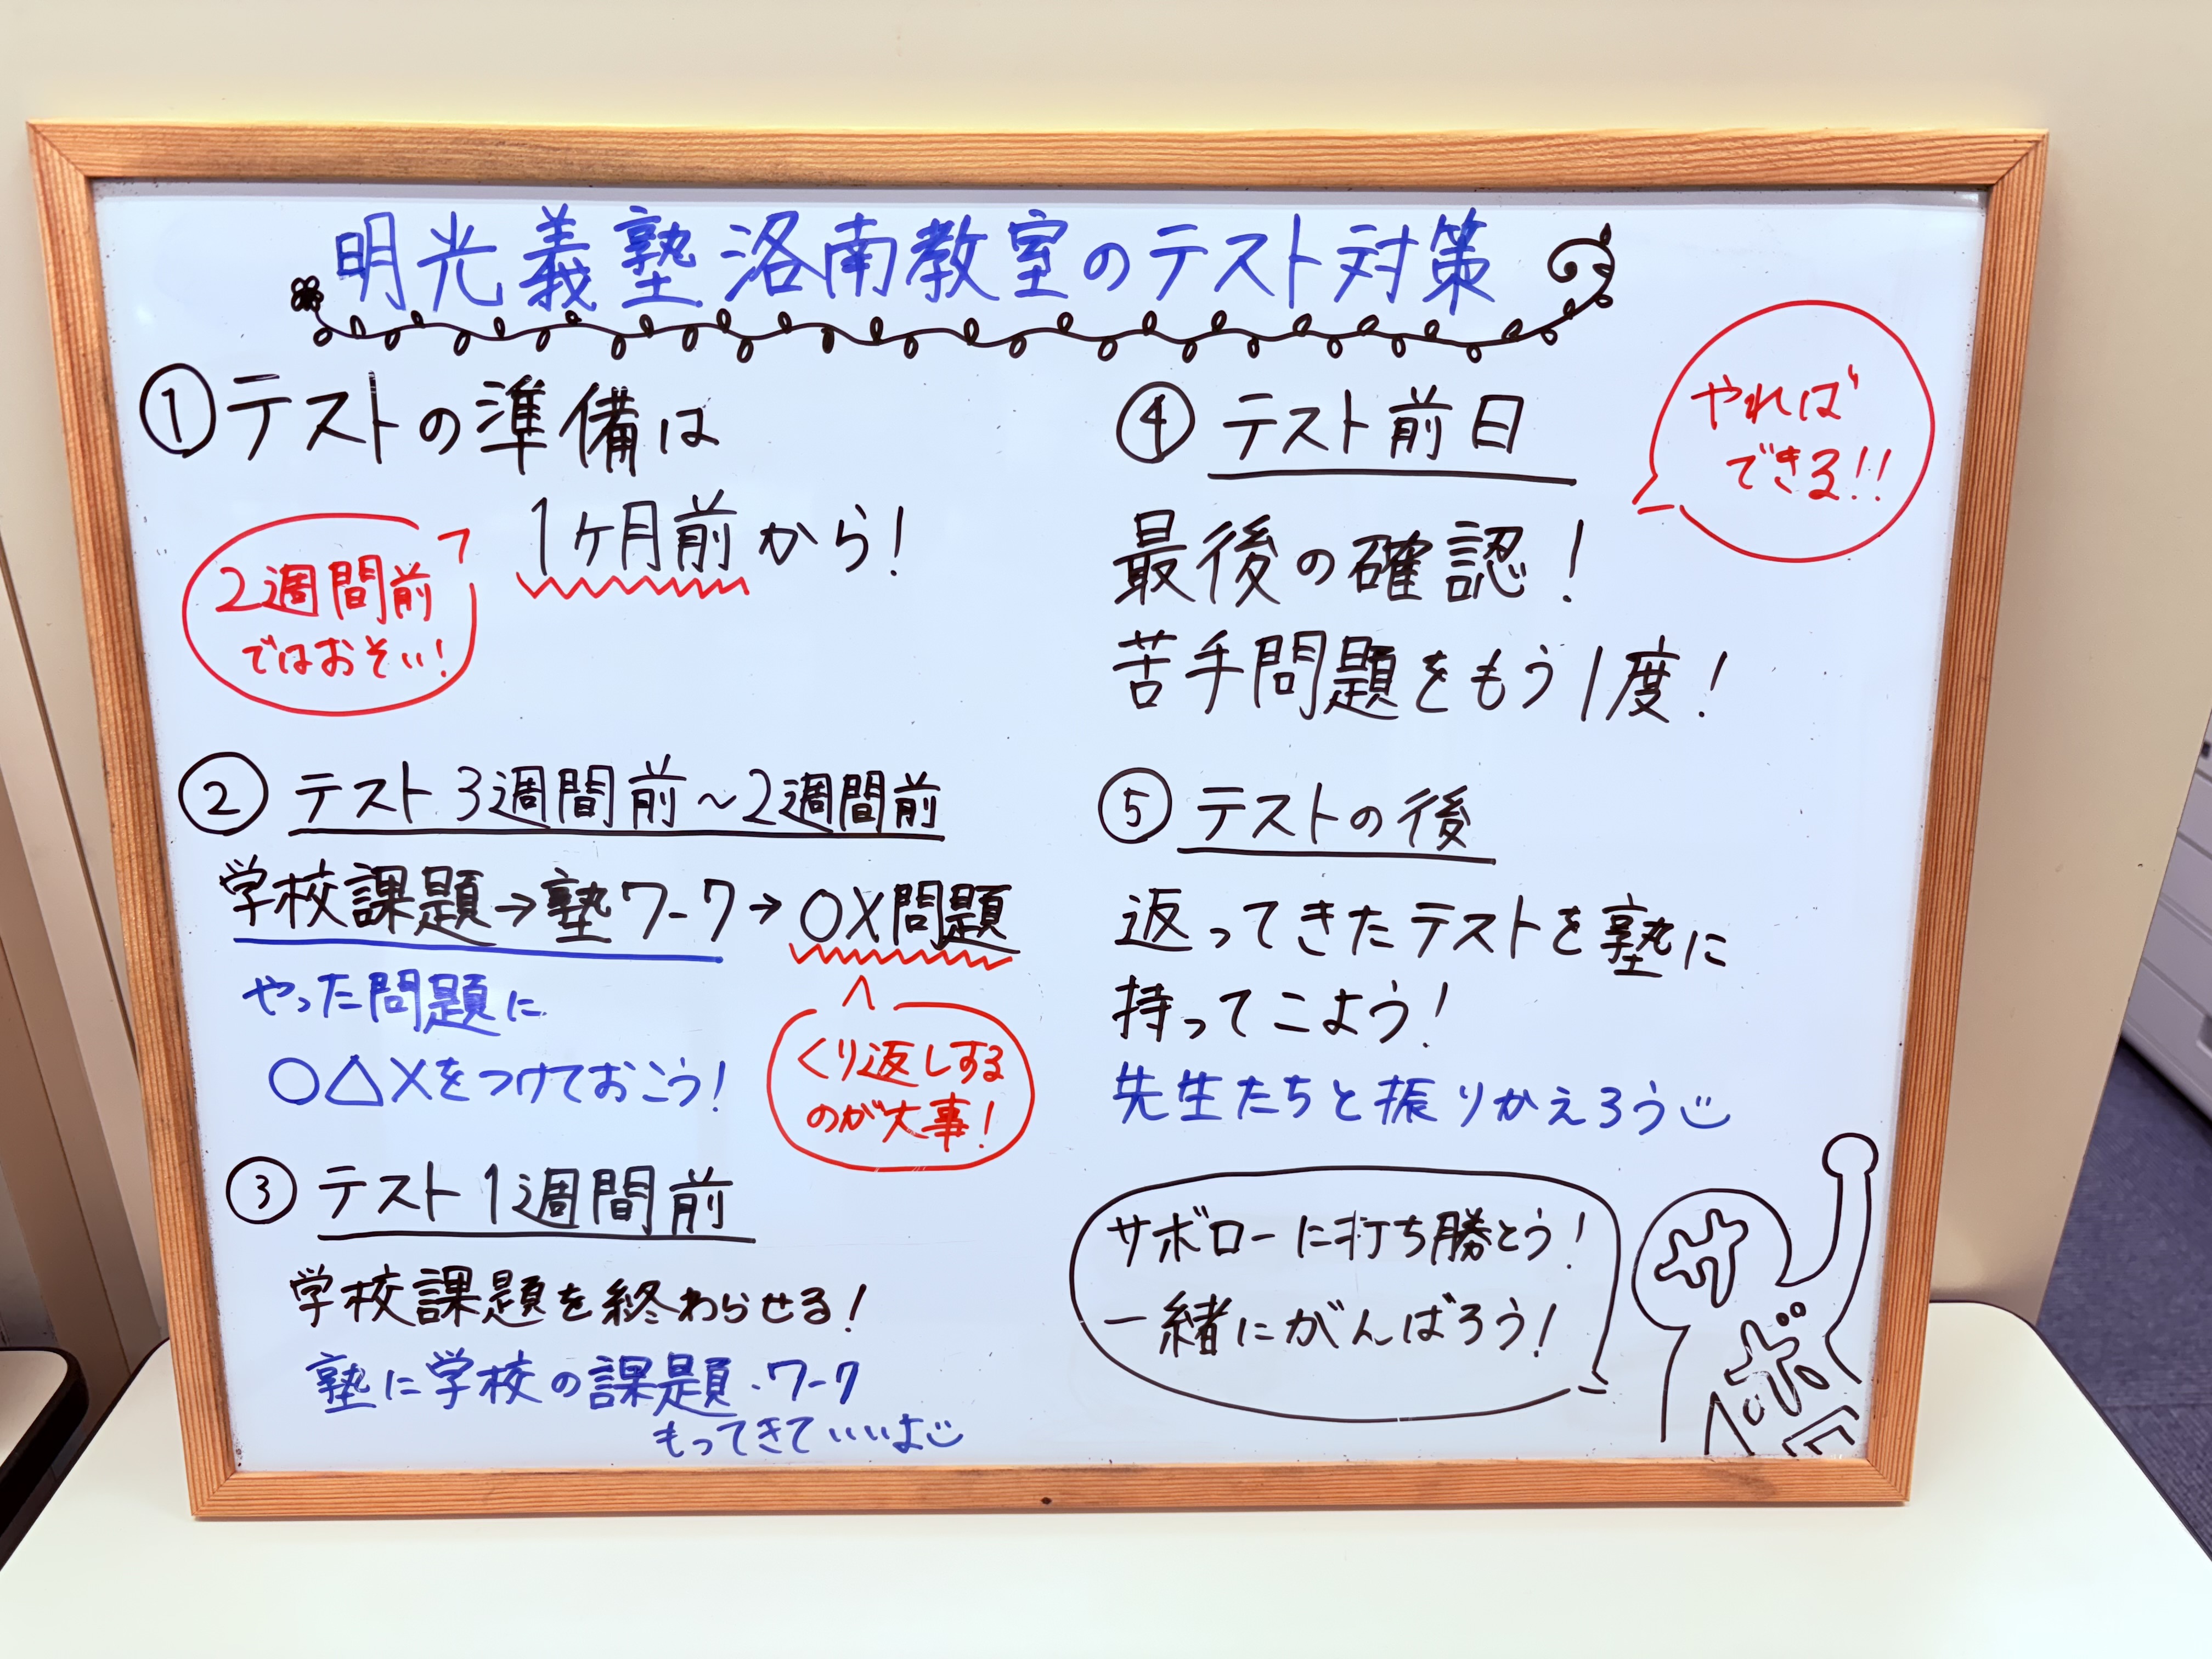 明光義塾洛南教室のテスト対策
①テストの準備は
1ヶ月前から!
2週間前
ではおそい!
②テスト3週間前~2週間前
学校課題→塾ワーク→○×問題
やった問題に
○△×をつけておこう!
くり返しする
のが大事!
③テスト1週間前
学校課題を終わらせる!
塾に学校の課題・ワーク
もってきていいよ
④テスト前日
やれば
できる!!
最後の確認!
苦手問題をもう1度!
⑤テストの後
返ってきたテストを塾に
持ってこよう!
先生たちと振りかえろう
サボローに打ち勝とう!
一緒にがんばろう!
サ
ボ